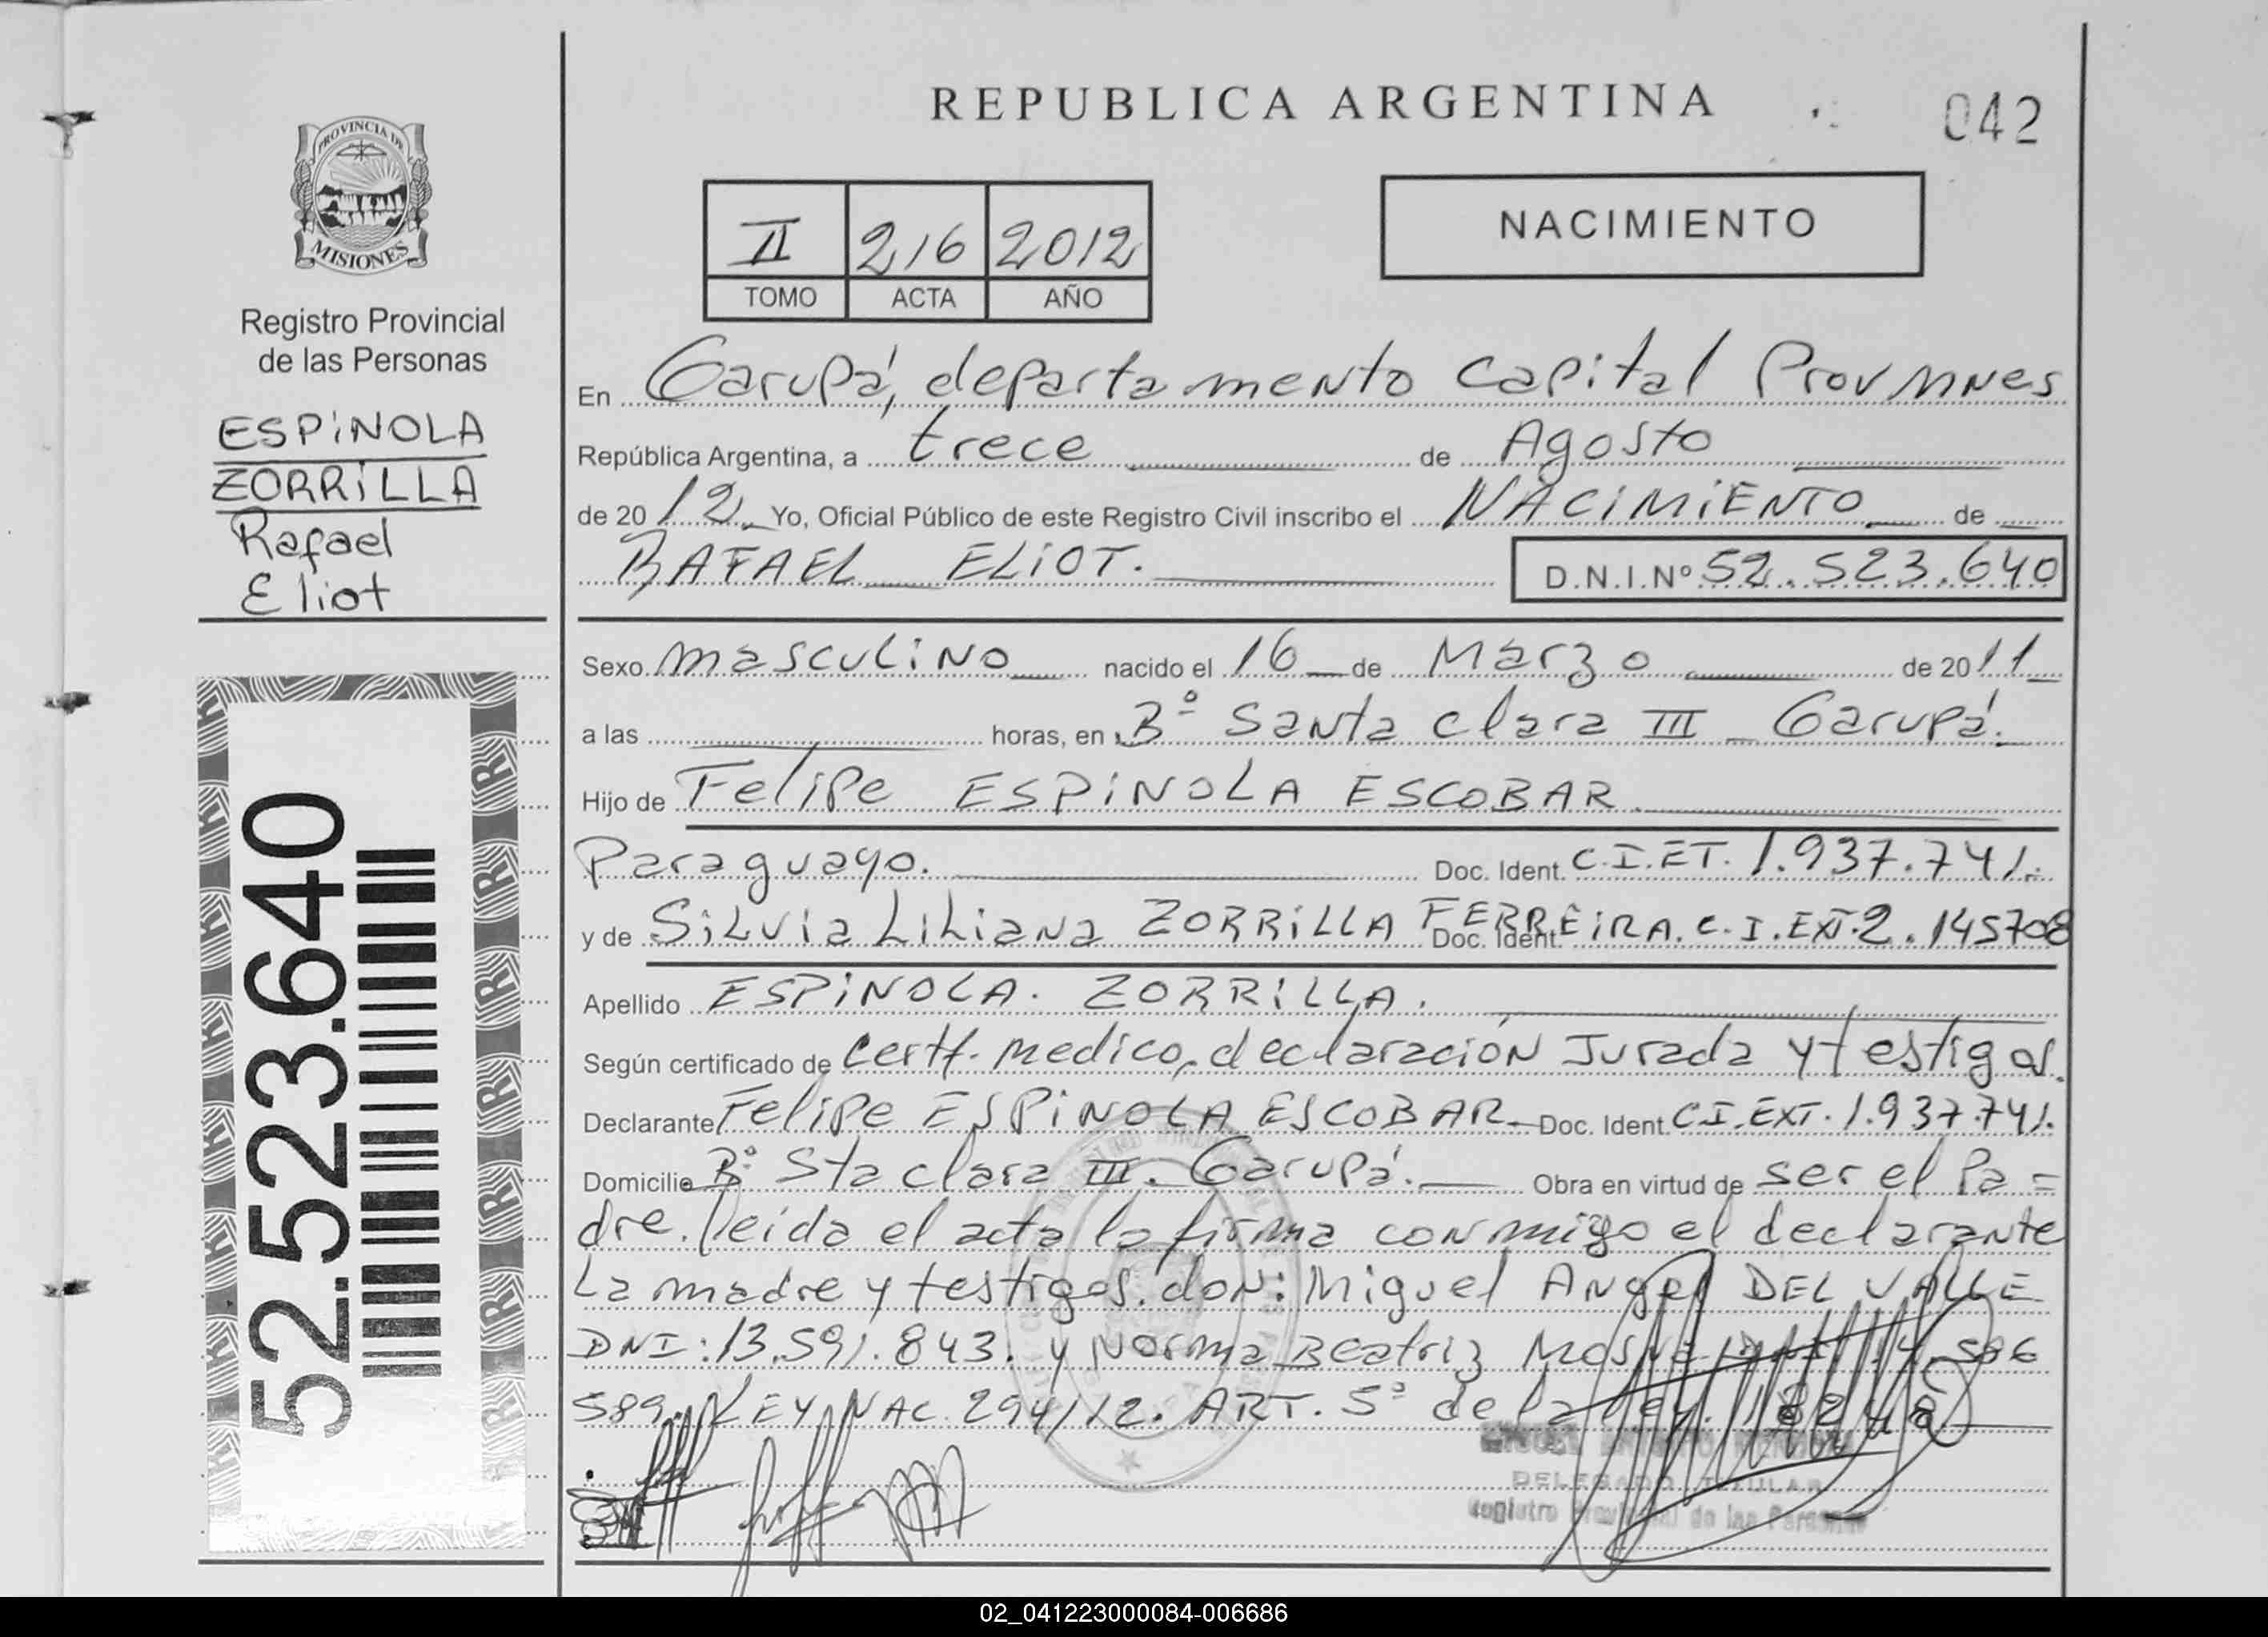 REPUBLICA ARGENTINA
042
PROVINCIA DE
MISIONES
Registro Provincial
de las Personas
ESPINOLA
ZORRILLA
Rafael
Eliot
52.523.640
II 216 2012
TOMO ACTA AÑO
NACIMIENTO
En Garupá, departamento Capital Prov Mnes
República Argentina, a trece de Agosto
de 2012. Yo, Oficial Público de este Registro Civil inscribo el NACIMIENTO de
RAFAEL ELIOT.
D.N.I.Nº 52.523.640
Sexo masculino nacido el 16 de Marzo de 2011
a las horas, en Bº Santa Clara III Garupá.
Hijo de Felipe ESPINOLA ESCOBAR.
Paraguayo. Doc. Ident. C.I.ET. 1.937.741.
y de Silvia Liliana ZORRILLA FERREIRA. Doc. Ident. C.I.EXT.2.145708
Apellido ESPINOLA. ZORRILLA.
Según certificado de Certf. medico, declaración Jurada y testigos.
Declarante Felipe ESPINOLA ESCOBAR Doc. Ident. CI.EXT. 1.937.741.
Domicilio Bº Sta clara III. Garupá. Obra en virtud de ser el Pa=
dre. leida el acta la firma conmigo el declarante
La madre y testigos. don: Miguel Angel DEL VALLE
DNI: 13.591.843. y Norma Beatriz
589. LEY NAC. 294/12. ART. 5º de la Ley. 18248
DELEGADO TITULAR
Registro Provincial de las Personas
02_041223000084-006686